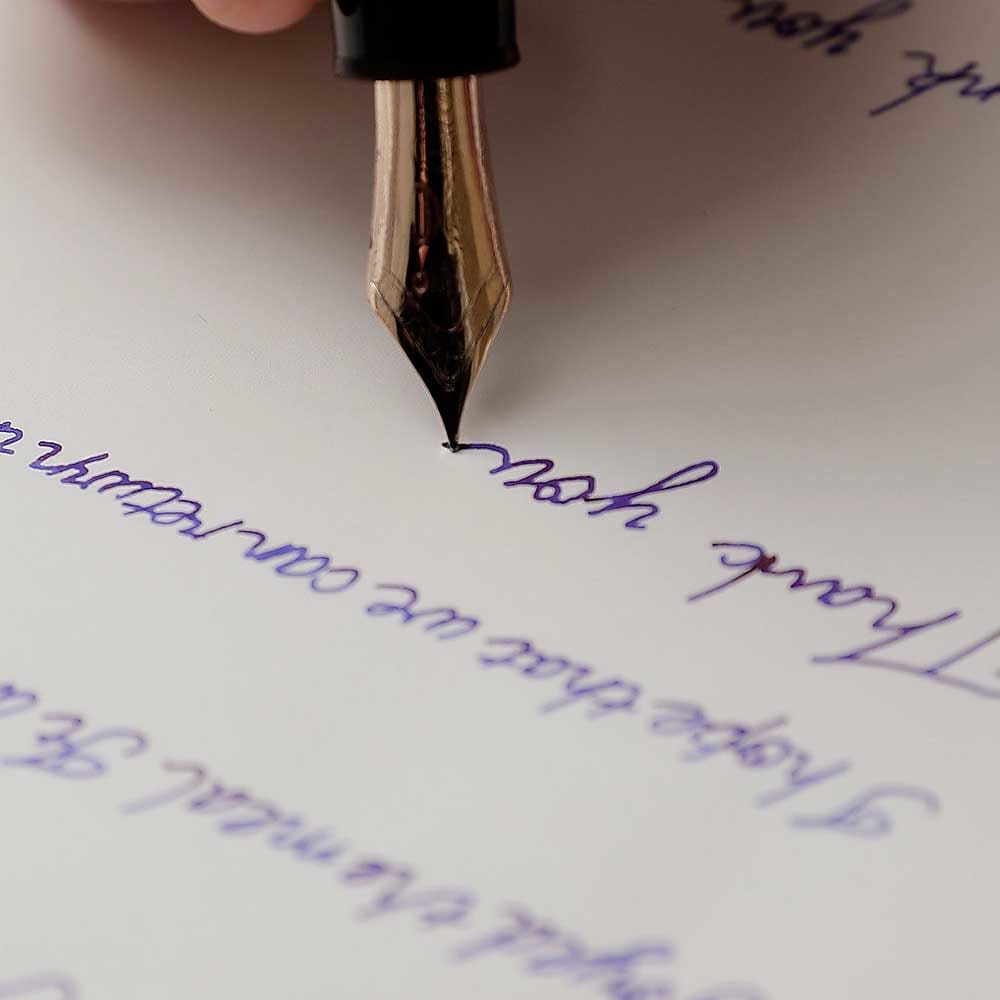 oyed the meal It
I hope that we can return
Thank you
nk you